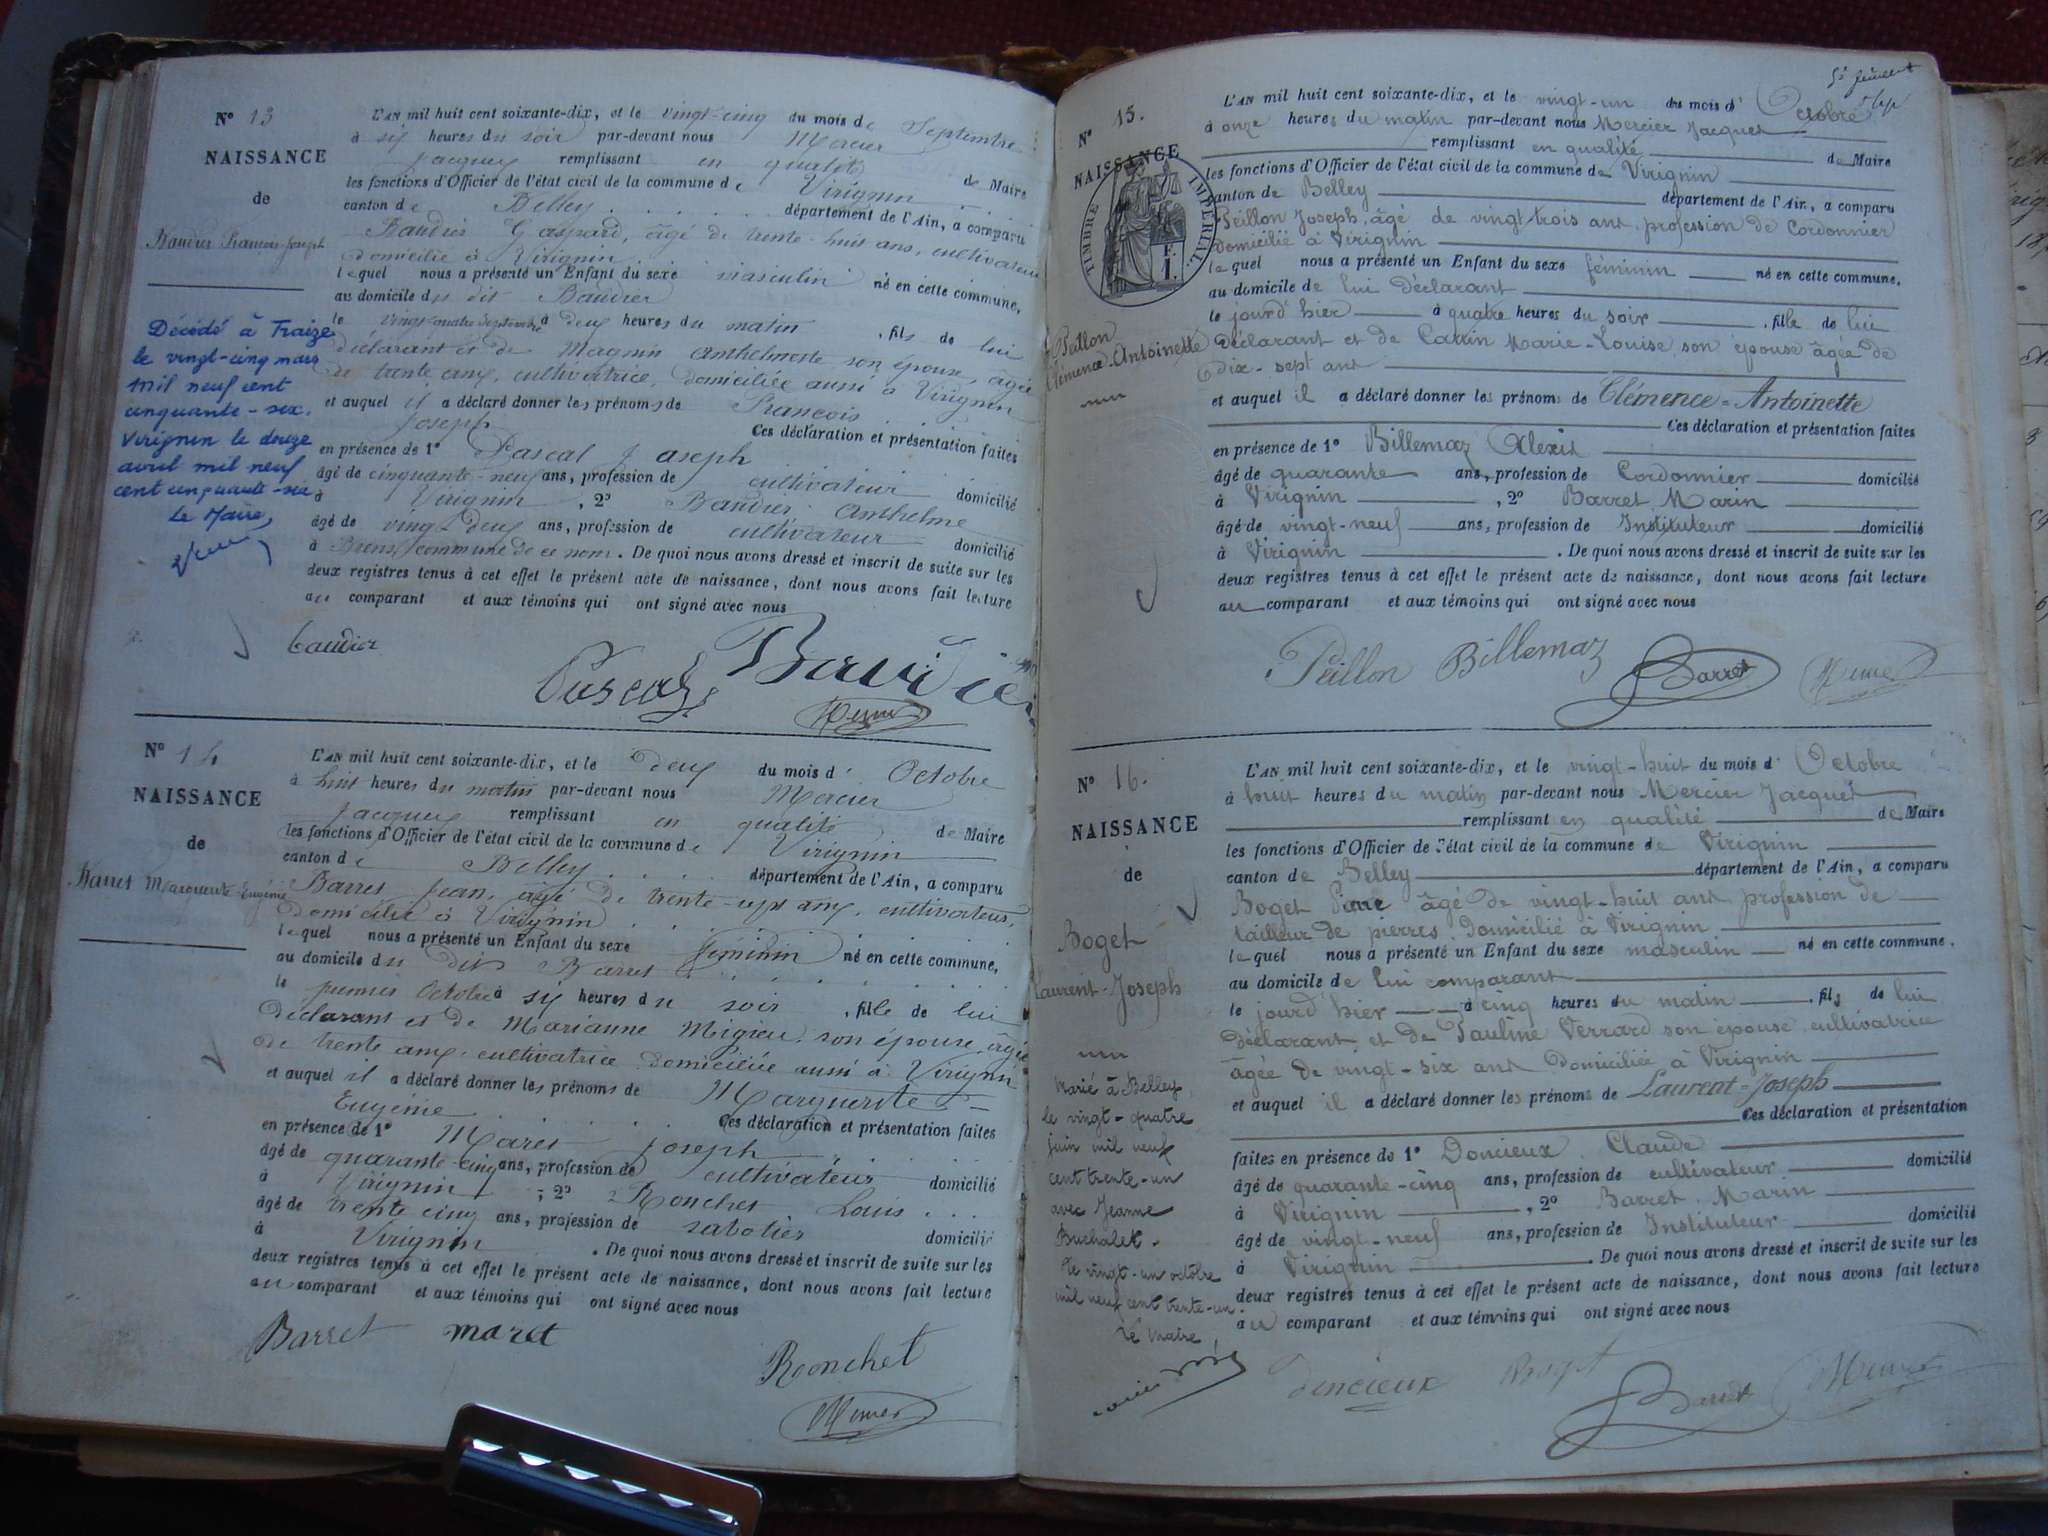 N° 13
NAISSANCE
de
Baudier François-Joseph
Décédé à Traize
le vingt-cinq mars
mil neuf cent
cinquante-six.
Virignin le douze
avril mil neuf
cent cinquante-six
Le Maire,
L'AN mil huit cent soixante-dix, et le vingt-cinq du mois de Septembre
à six heures du soir par-devant nous Mercier
Jacques remplissant en qualité de Maire
les fonctions d'Officier de l'état civil de la commune de Virignin
canton de Belley département de l'Ain, a comparu
Baudier Gaspard, âgé de trente-huit ans, cultivateur
domicilié à Virignin
lequel nous a présenté un Enfant du sexe masculin né en cette commune,
au domicile du dit Baudier
le vingt-quatre Septembre à deux heures du matin, fils de lui
déclarant et de Magnin Anthelmette son épouse, âgée
de trente cinq, cultivatrice, domiciliée aussi à Virignin
et auquel il a déclaré donner les prénoms de François
Joseph Ces déclaration et présentation faites
en présence de 1° Pascal Joseph
âgé de cinquante-neuf ans, profession de cultivateur domicilié
à Virignin, 2° Baudier Anthelme
âgé de vingt deux ans, profession de cultivateur domicilié
à Brens, commune de ce nom. De quoi nous avons dressé et inscrit de suite sur les
deux registres tenus à cet effet le présent acte de naissance, dont nous avons fait lecture
au comparant et aux témoins qui ont signé avec nous
Baudier
Pascal Baudier
Mercier
N° 14
NAISSANCE
de
Barret Marguerite-Eugénie
L'AN mil huit cent soixante-dix, et le deux du mois d' Octobre
à huit heures du matin par-devant nous Mercier
Jacques remplissant en qualité de Maire
les fonctions d'Officier de l'état civil de la commune de Virignin
canton de Belley département de l'Ain, a comparu
Barret Jean, âgé de trente-sept ans, cultivateur,
domicilié à Virignin
lequel nous a présenté un Enfant du sexe féminin né en cette commune,
au domicile du dit Barret
le premier Octobre à six heures du soir, fille de lui
déclarant et de Marianne Migieu, son épouse, âgée
de trente ans, cultivatrice domiciliée aussi à Virignin
et auquel il a déclaré donner les prénoms de Marguerite
Eugénie Ces déclaration et présentation faites
en présence de 1° Maret Joseph
âgé de quarante-cinq ans, profession de cultivateur domicilié
à Virignin, 2° Ronchet Louis
âgé de trente cinq ans, profession de sabotier domicilié
à Virignin. De quoi nous avons dressé et inscrit de suite sur les
deux registres tenus à cet effet le présent acte de naissance, dont nous avons fait lecture
au comparant et aux témoins qui ont signé avec nous
Barret maret
Ronchet
Mercier
5e feuillet
N° 15.
NAISSANCE
TIMBRE IMPÉRIAL
1 F.
Peillon
Clémence-Antoinette
L'AN mil huit cent soixante-dix, et le vingt-un du mois d' Octobre
à onze heures du matin par-devant nous Mercier Jacques
remplissant en qualité de Maire
les fonctions d'Officier de l'état civil de la commune de Virignin
canton de Belley département de l'Ain, a comparu
Peillon Joseph, âgé de vingt trois ans, profession de Cordonnier
domicilié à Virignin
lequel nous a présenté un Enfant du sexe féminin né en cette commune,
au domicile de lui déclarant
le jourd'hier à quatre heures du soir, fille de lui
déclarant et de Cattin Marie-Louise, son épouse âgée de
dix-sept ans
et auquel il a déclaré donner les prénoms de Clémence-Antoinette
Ces déclaration et présentation faites
en présence de 1° Billemaz Alexis
âgé de quarante ans, profession de Cordonnier domicilié
à Virignin, 2° Barret Marin
âgé de vingt-neuf ans, profession de Instituteur domicilié
à Virignin. De quoi nous avons dressé et inscrit de suite sur les
deux registres tenus à cet effet le présent acte de naissance, dont nous avons fait lecture
au comparant et aux témoins qui ont signé avec nous
Peillon Billemaz Barret Mercier
N° 16.
NAISSANCE
de
Boget
Laurent-Joseph
Marié à Belley
le vingt-quatre
juin mil neuf
cent trente-un
avec Jeanne
Buchalet.
Le vingt-un octobre
mil neuf cent trente-un.
Le Maire,
L'AN mil huit cent soixante-dix, et le vingt-huit du mois d' Octobre
à huit heures du matin par-devant nous Mercier Jacques
remplissant en qualité de Maire
les fonctions d'Officier de l'état civil de la commune de Virignin
canton de Belley département de l'Ain, a comparu
Boget Pierre âgé de vingt-huit ans profession de
tailleur de pierres domicilié à Virignin
lequel nous a présenté un Enfant du sexe masculin né en cette commune.
au domicile de lui comparant
le jourd'hier à cinq heures du matin, fils de lui
déclarant et de Pauline Verrard son épouse cultivatrice
âgée de vingt-six ans domiciliée à Virignin
et auquel il a déclaré donner les prénoms de Laurent-Joseph
Ces déclaration et présentation
faites en présence de 1° Doncieux Claude
âgé de quarante-cinq ans, profession de cultivateur domicilié
à Virignin, 2° Barret Marin
âgé de vingt-neuf ans, profession de Instituteur domicilié
à Virignin. De quoi nous avons dressé et inscrit de suite sur les
deux registres tenus à cet effet le présent acte de naissance, dont nous avons fait lecture
au comparant et aux témoins qui ont signé avec nous
Doncieux Boget Barret Mercier